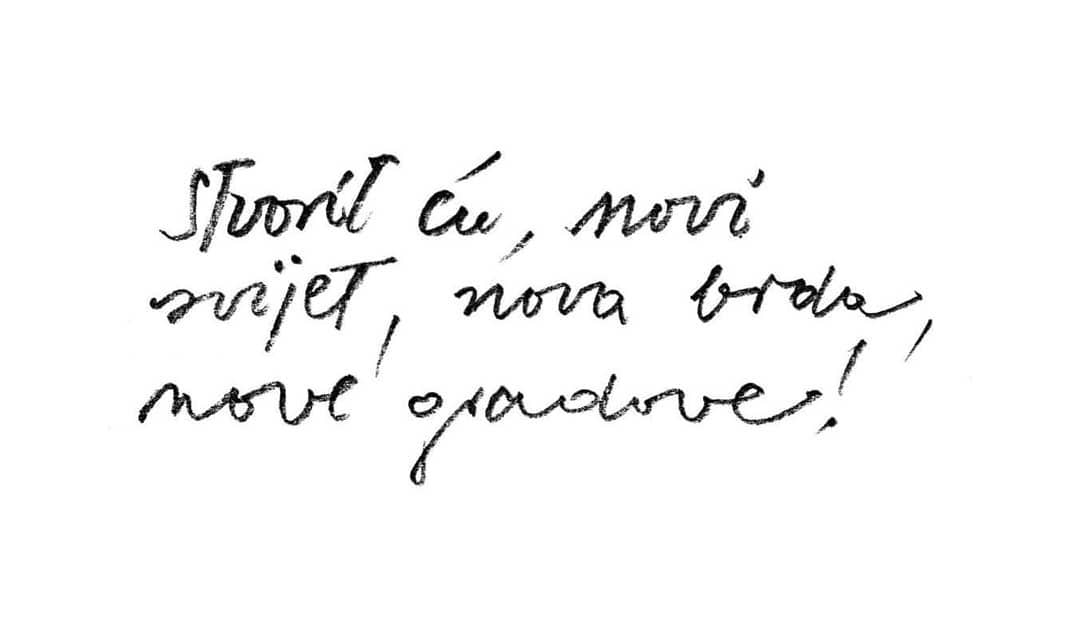 stvorit ću, novi
svijet, nova brda,
nove gradove!